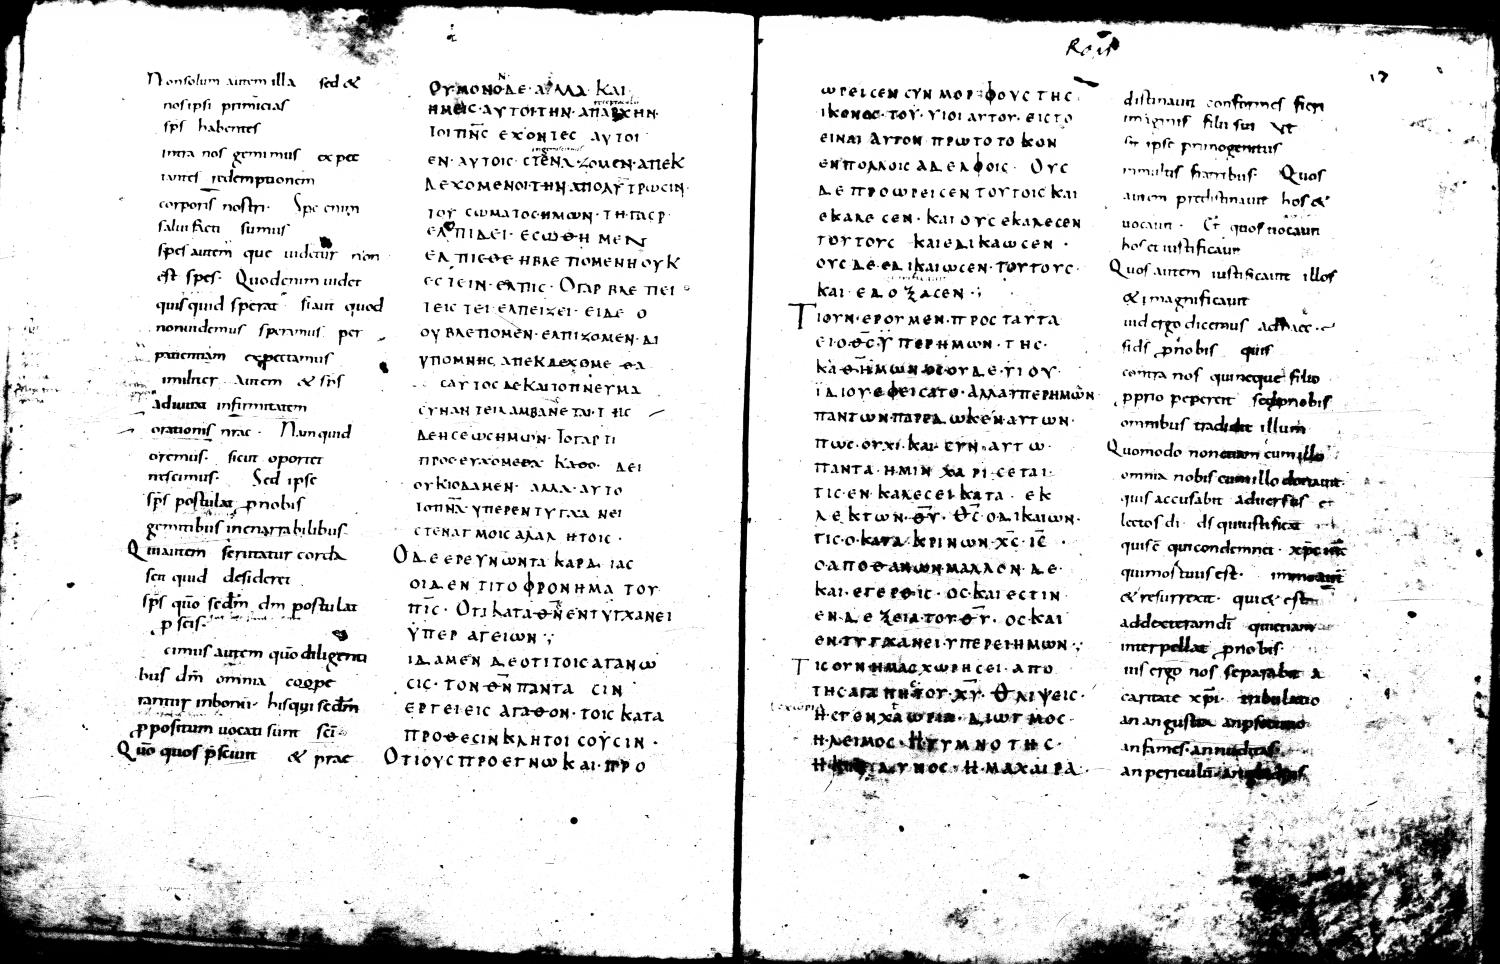 Non solum autem illa sed &
nos ipsi primicias
sps habentes
intra nos gemimus expec
tantes redemptionem
corporis nostri· Spe enim
salui facti sumus
spes autem que uidetur non
est spes· Quod enim uidet
quis quid sperat si aut quod
non uidemus speramus per
patientiam expectamus
imiliter autem & sps
adiuuat infirmitatem
orationis nrae· Nam quid
oremus· sicut oportet
nescimus· Sed ipse
sps postulat p nobis
gemitibus inenarrabilibus·
Qui autem scrutatur corda
scit quid desideret
sps quo secdm dm postulat
p scis·
cimus autem quo diligenti
bus dm omnia coope
rantur in bonu· his qui secdm
ppositum uocati sunt sci·
Quo quos psciuit & prae
ΟΥΜΟΝΟΔΕ·ΑΛΛΑ ΚΑΙ
ΗΜΕΙC·ΑΥΤΟΙ·ΤΗΝ·ΑΠΑΡΧΗΝ·
ΤΟΙ ΠΝC ΕΧΟΝΤΕC ΑΥΤΟΙ
ΕΝ·ΑΥΤΟΙC·CΤΕΝΑΖΟΜΕΝ·ΑΠΕΚ
ΔΕΧΟΜΕΝΟΙ·ΤΗΝ·ΑΠΟΛΥΤΡΩCΙΝ·
ΤΟΥ CΩΜΑΤΟC·ΗΜΩΝ·ΤΗ·ΓΑΡ
ΕΛΠΙΔΕΙ·ΕCΩΘΗΜΕΝ
ΕΛΠΙCΘΕ ΗΒΛΕΠΟΜΕΝΗ ΟΥΚ
ΕCΤΕΙΝ·ΕΛΠΙC·ΟΓΑΡ ΒΛΕΠΕΙ
ΤΕΙC ΤΕΙ ΕΛΠΕΙΖΕΙ·ΕΙΔΕ Ο
ΟΥ ΒΛΕΠΟΜΕΝ·ΕΛΠΙΖΟΜΕΝ·ΔΙ
ΥΠΟΜΝΗC ΑΠΕΚΔΕΧΟΜΕΘΑ
CΑΥΤΟC ΔΕ ΚΑΙ ΤΟ ΠΝΕΥΜΑ
CΥΝΑΝΤΕΙΛΑΜΒΑΝΕΤΑΙ·ΤΗC
ΔΕΗCΕΩC ΗΜΩΝ·ΤΟ ΓΑΡ ΤΙ
ΠΡΟCΕΥΧΟΜΕΘΑ ΚΑΘΟ· ΔΕΙ
ΟΥΚ ΙΟΔΑΜΕΝ· ΑΛΛΑ·ΑΥΤΟ
ΤΟ ΠΝΑ ΥΠΕΡΕΝΤΥΓΧΑΝΕΙ
CΤΕΝΑΓΜΟΙC ΑΛΑΛΗΤΟΙC·
Ο ΔΕ ΕΡΕΥΝΩΝ ΤΑ ΚΑΡΔΙΑC
ΟΙΔΕΝ ΤΙ ΤΟ ΦΡΟΝΗΜΑ ΤΟΥ
ΠΝC·ΟΤΙ ΚΑΤΑ ΘΝ ΕΝΤΥΓΧΑΝΕΙ
ΥΠΕΡ ΑΓΕΙΩΝ·
ΙΔΑΜΕΝ ΔΕ ΟΤΙ ΤΟΙC ΑΓΑΠΩ
CΙC·ΤΟΝ ΘΝ ΠΑΝΤΑ CΙΝ
ΕΡΓΕΙ ΕΙC ΑΓΑΘΟΝ·ΤΟΙC ΚΑΤΑ
ΠΡΟΘΕCΙΝ ΚΛΗΤΟΙC ΟΥCΙΝ·
ΟΤΙ ΟΥC ΠΡΟΕΓΝΩ ΚΑΙ·ΠΡΟ
17
ΩΡΕΙCΕΝ CΥΝΜΟΡΦΟΥC ΤΗC
ΙΚΟΝΟC·ΤΟΥ·ΥΙΟΙ ΑΥΤΟΥ·ΕΙC ΤΟ
ΕΙΝΑΙ ΑΥΤΟΝ ΠΡΩΤΟΤΟΚΟΝ
ΕΝ ΠΟΛΛΟΙC ΑΔΕΛΦΟΙC· ΟΥC
ΔΕ ΠΡΟΩΡΕΙCΕΝ ΤΟΥΤΟΙC ΚΑΙ
ΕΚΑΛΕCΕΝ·ΚΑΙ ΟΥC ΕΚΑΛΕCΕΝ
ΤΟΥΤΟΥC ΚΑΙ ΕΔΙΚΑΩCΕΝ·
ΟΥC ΔΕ·ΕΔΙΚΑΙΩCΕΝ·ΤΟΥΤΟΥC·
ΚΑΙ·ΕΔΟΞΑCΕΝ·
ΤΙ ΟΥΝ·ΕΡΟΥΜΕΝ·ΠΡΟC ΤΑΥΤΑ
ΕΙ Ο ΘC ΥΠΕΡ ΗΜΩΝ·ΤΗC·
ΚΑΘ ΗΜΩΝ ΟC ΟΥΔΕ·ΥΙΟΥ·
ΙΔΙΟΥ ΕΦΕΙCΑΤΟ·ΑΛΛΑ ΥΠΕΡ ΗΜΩΝ
ΠΑΝΤΩΝ·ΠΑΡΕΔΩΚΕΝ·ΑΥΤΩΝ·
ΠΩC·ΟΥΧΙ·ΚΑΙ·CΥΝ·ΑΥΤΩ·
ΠΑΝΤΑ·ΗΜΙΝ ΧΑΡΙCΕΤΑΙ·
ΤΙC·ΕΝΚΑΛΕCΕΙ·ΚΑΤΑ· ΕΚ
ΛΕΚΤΩΝ·ΘΥ·ΘC·Ο ΔΙΚΑΙΩΝ·
ΤΙC·Ο·ΚΑΤΑΚΡΙΝΩΝ·ΧC·ΙC·
Ο ΑΠΟΘΑΝΩΝ·ΜΑΛΛΟΝ·ΔΕ·
ΚΑΙ·ΕΓΕΡΘΙC·ΟC·ΚΑΙ ΕCΤΙΝ
ΕΝ·ΔΕΞΕΙΑ·ΤΟΥ ΘΥ· ΟC ΚΑΙ
ΕΝΤΥΓΧΑΝΕΙ·ΥΠΕΡΕΙ ΗΜΩΝ·
ΤΙC ΟΥΝ ΗΜΑC ΧΩΡΗCΕΙ·ΑΠΟ
ΤΗC ΑΓΑΠΗC ΤΟΥ·ΧΥ·ΘΛΙΨΕΙC·
Η CΤΕΝΧΑΩΡΙΑ·ΔΙΩΓΜΟC·
Η·ΛΕΙΜΟC·Η ΓΥΜΝΟΤΗC·
Η·ΚΙΝΔΥΝΟC·Η·ΜΑΧΑΙΡΑ·
distinauit conformes fieri
imaginis filii sui Vt
sit ipse primogenitus
in multis fratribus· Quos
autem predistinauit hos &
uocauit· Et quos uocauit
hos et iustificauit
Quos autem iustificauit illos
& magnificauit
uid ergo dicemus ad haec·
si ds p nobis quis
contra nos qui neque filio
pprio pepercit sed p nobis
omnibus tradidit illum
Quomodo non etiam cum illo
omnia nobis cum illo donauit
quis accusabit aduersus e
lectos di ds qui iustificat
quis e qui condemnet· xps ihs
qui mortuus est·
& resurrexit qui & est
ad dexteram di qui etiam
interpellat p nobis
uis ergo nos separabit a
caritate xpi tribulatio
an angustia an psecutio
an fames·an nuditas
an periculu·an gladius